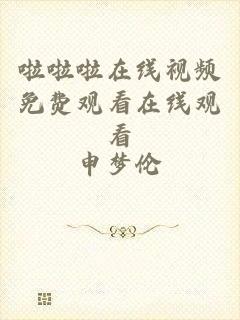 啦啦啦在线视频
免费观看在线观
看
申梦伦